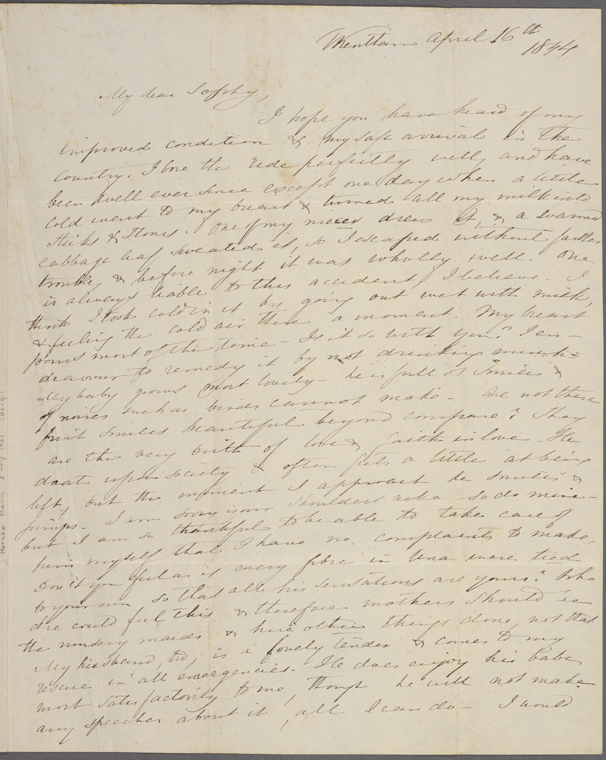 Wrentham April 16th
1844
My dear Sophy,
I hope you have heard of my
improved condition & my safe arrival in the
country. I bore the ride perfectly well, and have
been well ever since except one day when a little
cold went to my breast & turned all my milk into
sticks & stones. One of my nieces drew it, & a warmed
cabbage leaf sweated it, so I escaped without further
trouble, & before night it was wholly well. One
is always liable to this accident, I believe. I
think I took cold in it by going out wet with milk,
& feeling the cold air there a moment. My breast
pours most of the time - Is it so with you? I en-
deavour to remedy it by not drinking much -
My baby grows most lovely - he is full of smiles &
of noises such as birds cannot make. Are not there
first smiles beautiful beyond compare? They
are the very birth of love & faith in love. He
doats upon society & often frets a little at being
left, but the moment I approach he smiles &
jumps. I am sorry your shoulders ache - so do mine -
but I am so thankful to be able to take care of
him myself that I have no complaints to make.
Don't you feel as if every fibre in Una were tied
to your own so that all his sensations are yours? Who
else could feel this & therefore mothers should be
the nursery maids & have other things done, not that
My husband, too, is a lovely tender & comes to my
rescue in all emergencies. He does enjoy his babe
most satisfactorily to me, though he will not make
any speeches about it, all I can do - I would